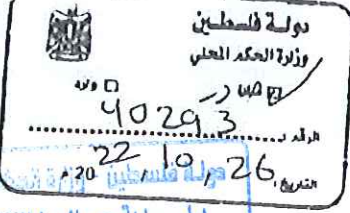 دولة فلسطين
وزارة الحكم المحلي
☑ صادر ☐ وارد
الرقم : 40293
التاريخ : 26 / 10 / 2022 م
دولة فلسطين - وزارة